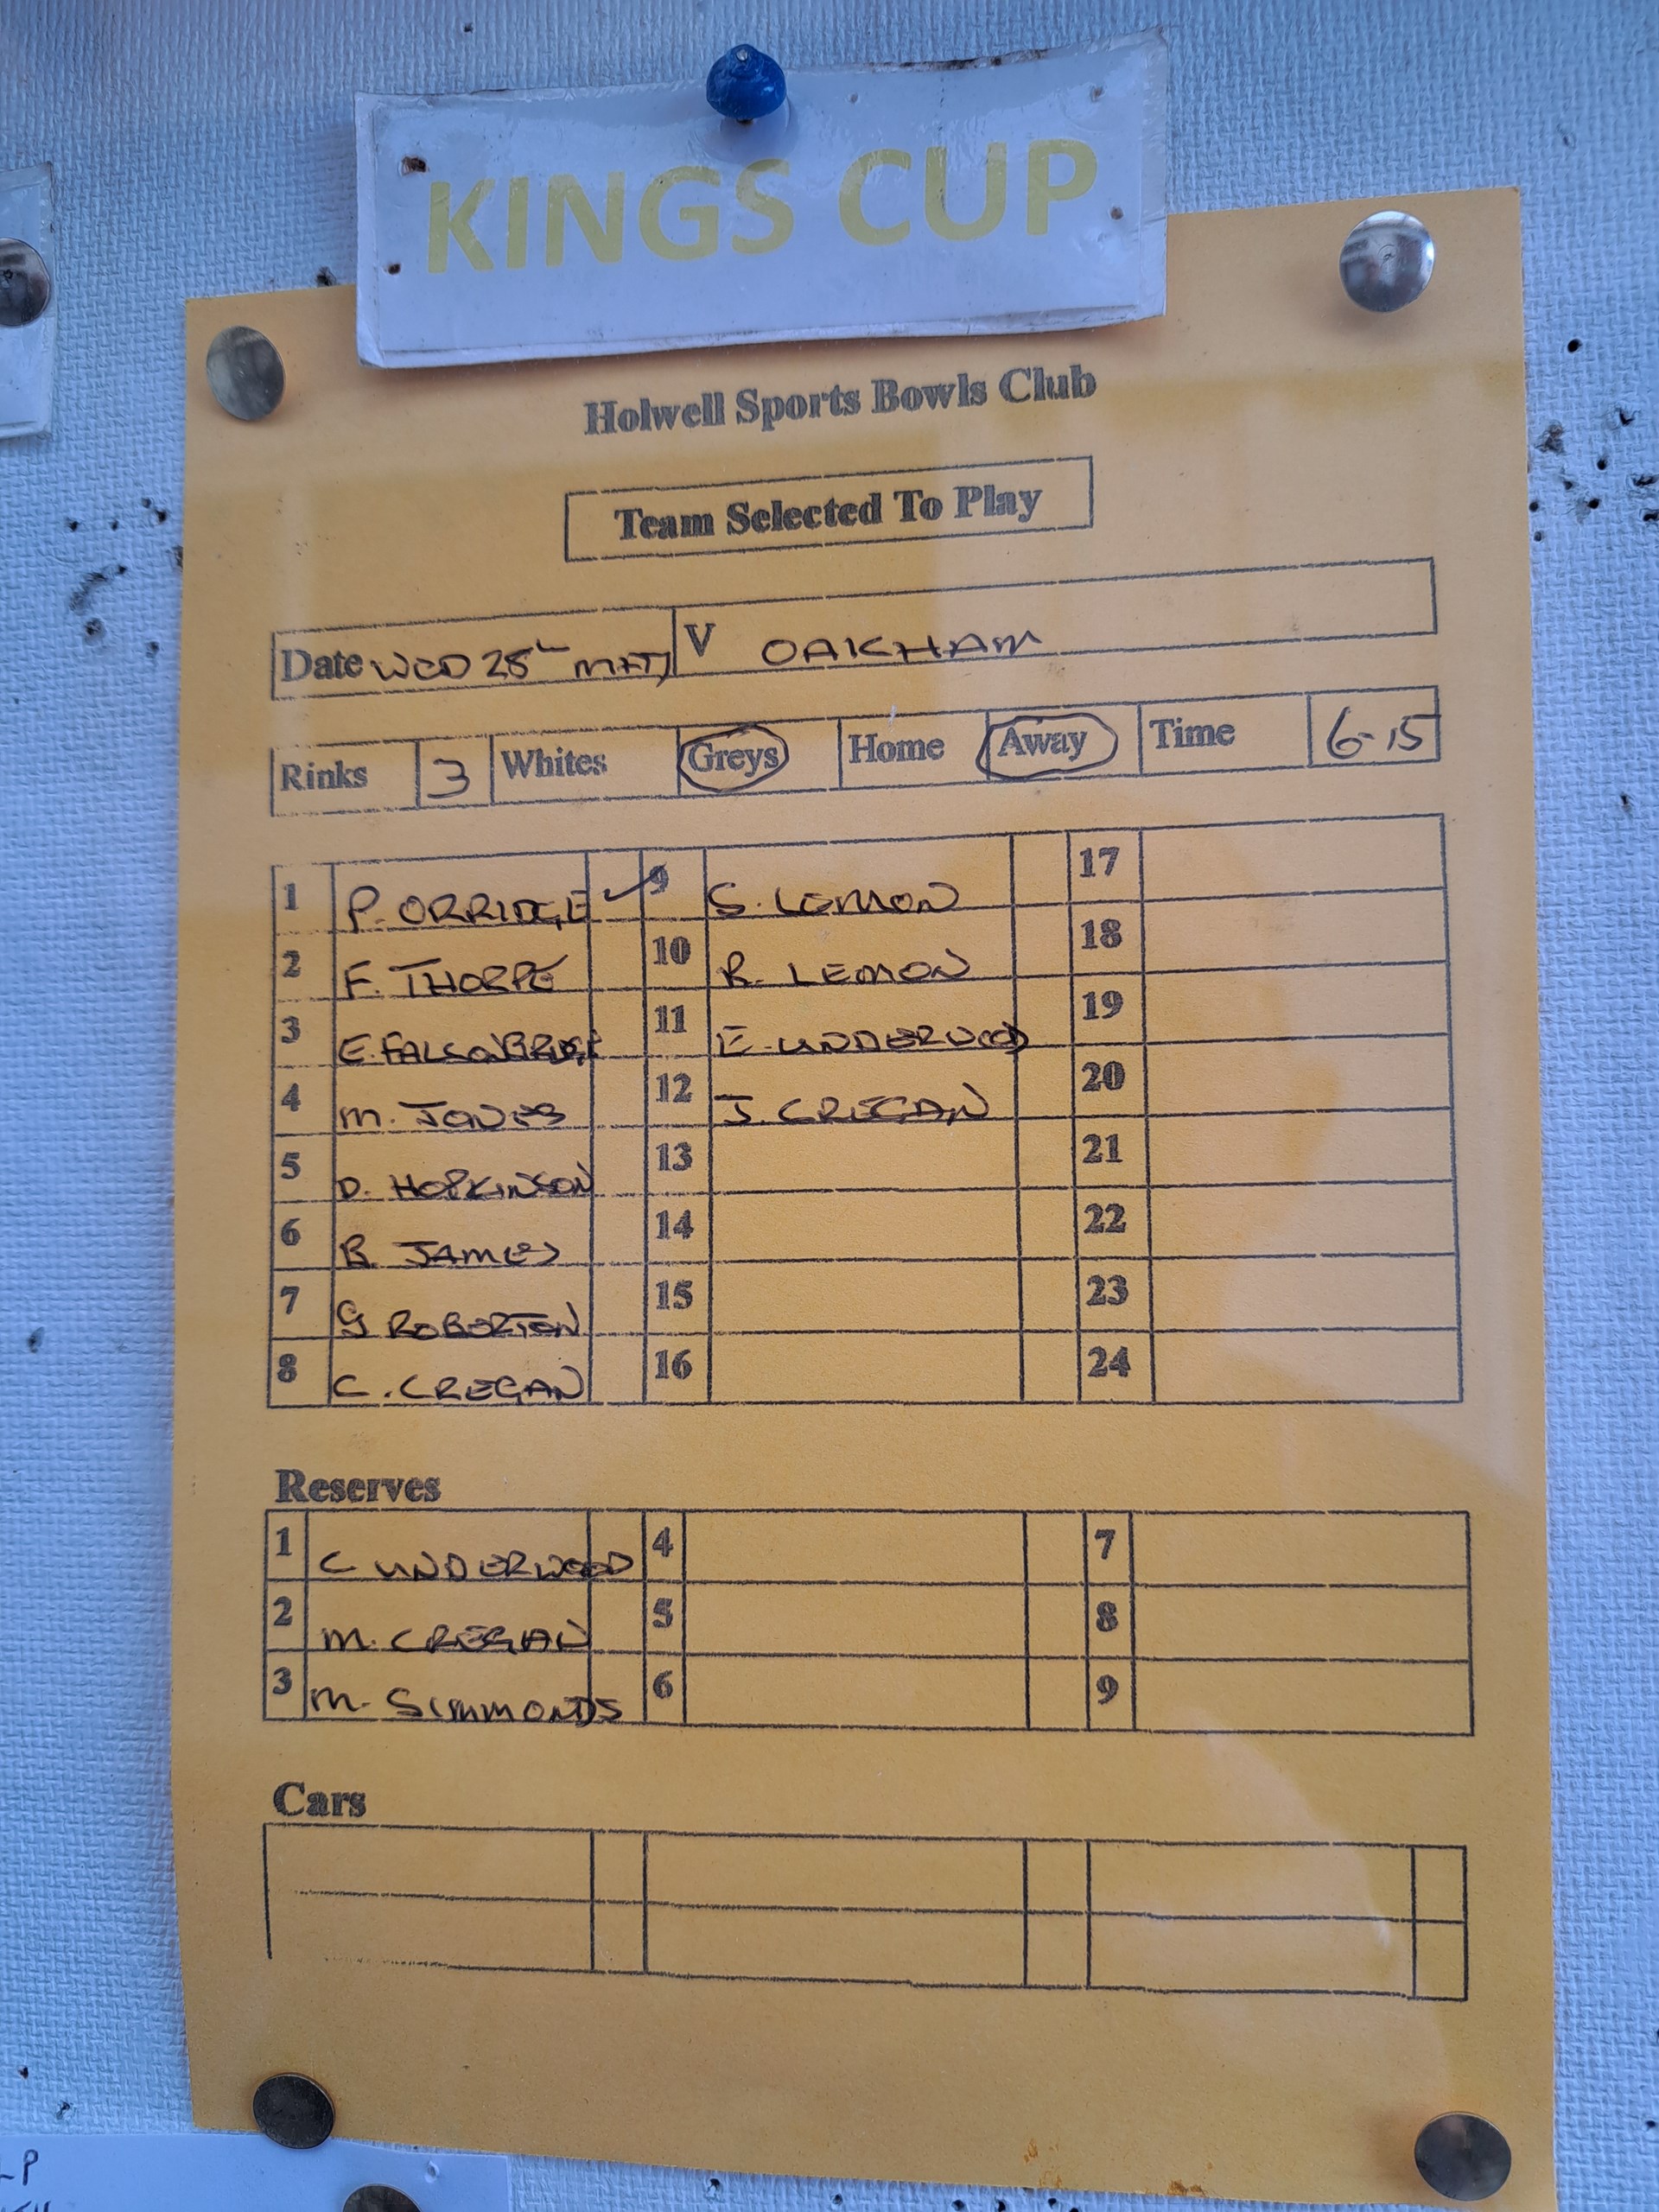 KINGS CUP
Holwell Sports Bowls Club
Team Selected To Play
Date WED 28th MAY V OAKHAM
Rinks 3 Whites Greys Home Away Time 6-15
1 P. ORRIDGE ✓ 9 S. LEMON 17
2 F. THORPE 10 R. LEMON 18
3 E. FALCONBRIDGE 11 E. UNDERWOOD 19
4 M. JONES 12 J. CREGAN 20
5 D. HOPKINSON 13 21
6 R. JAMES 14 22
7 G ROBERTON 15 23
8 C. CREGAN 16 24
Reserves
1 C UNDERWOOD 4 7
2 M. CREGAN 5 8
3 M. SIMMONDS 6 9
Cars
LP